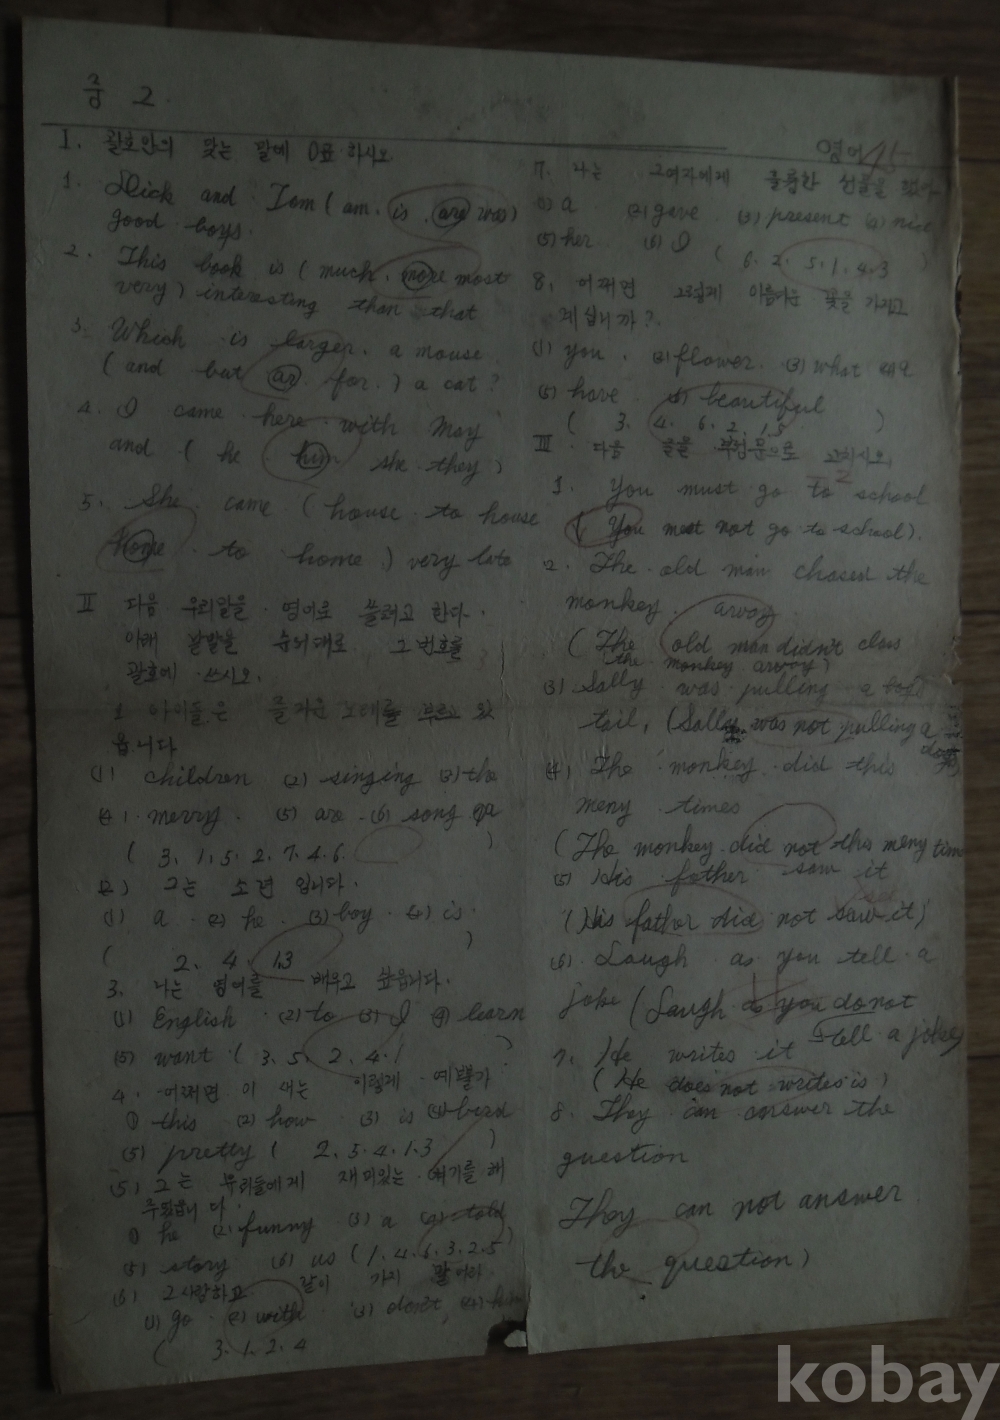 중 2.
영어
I. 괄호안의 맞는 말에 O표 하시오
1. Dick and Tom (am. is. are was)
good boys.
2. This book is (much. more most
very) interesting than that
3. Which is larger. a mouse.
(and but or for.) a cat?
4. I came here with May
and (he him she they)
5. She came (house to house
home to home) very late
II 다음 우리말을 영어로 쓸려고 한다.
아래 낱말을 순서대로 그 번호를
괄호에 쓰시오.
1 아이들은 즐거운 노래를 부르고 있
읍니다
(1) children (2) singing (3) the
(4) merry. (5) are (6) song (7) a
( 3. 1. 5. 2. 7. 4. 6. )
(2) 그는 소년 입니다.
(1) a (2) he (3) boy (4) is
( 2. 4. 1.3 )
3. 나는 영어를 배우고 싶읍니다.
(1) English (2) to (3) I (4) learn
(5) want ( 3. 5. 2. 4. 1 )
4. 어쩌면 이 새는 이렇게 예쁠가
(1) this (2) how (3) is (4) bird
(5) pretty ( 2. 5. 4. 1. 3 )
(5) 그는 우리들에게 재미있는 얘기를 해
주었읍니다.
(1) he (2) funny (3) a (4) told
(5) story (6) us ( 1. 4. 6. 3. 2. 5 )
(6) 그사람하고 같이 가지 말어라
(1) go (2) with (3) don't (4) him
( 3. 1. 2. 4
7. 나는 그여자에게 훌륭한 선물을 했다
(1) a (2) gave (3) present (4) nice
(5) her (6) I ( 6. 2. 5. 1. 4. 3 )
8. 어쩌면 그렇게 아름다운 꽃을 가지고
계십니까?
(1) you. (2) flower. (3) what
(5) have (6) beautiful
( 3. 4. 6. 2. 1. 5 )
III 다음 글을 부정문으로 고치시오.
1. You must go to school
( You must not go to school).
2. The old man chased the
monkey. away.
(The old man didn't
the monkey away)
(3) Sally was pulling a
tail. (Sally was not pulling a
(4) The monkey did this
meny times
(The monkey did not this meny time
(5) His father saw it
(His father did not saw it)
(6). Laugh as you tell a
joke (Laugh as you do not
tell a joke)
7. He writes it
(He does not writes is)
8. They can answer the
question
They can not answer
the question)
kobay